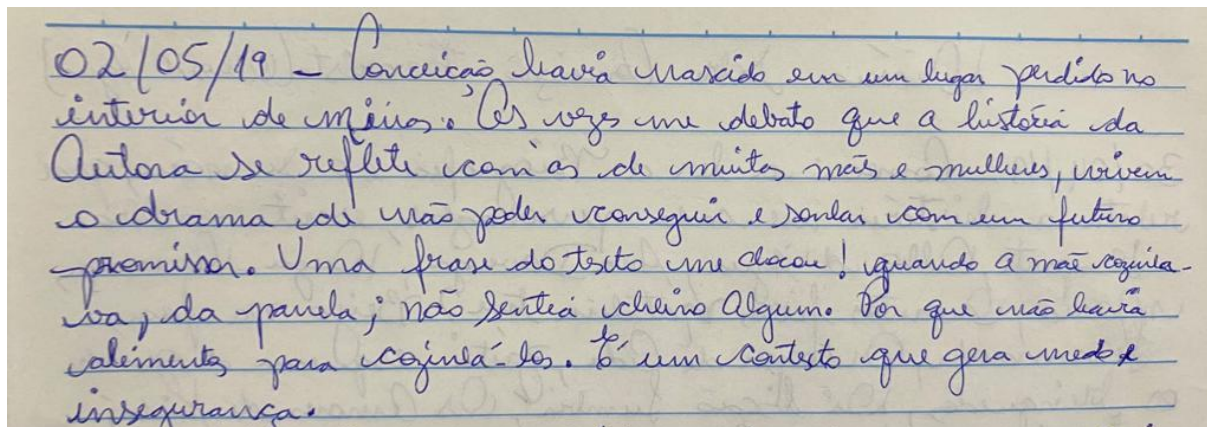 02/05/19 - Conceição, havia nascido em um lugar perdido no
interior de minas. Às vezes me debato que a história da
Autora se reflete com as de muitas mães e mulheres, vivem
o drama de não poder conseguir e sonhar com um futuro
promissor. Uma frase do texto me chocou! quando a mãe cozinha-
va, da panela; não sentia cheiro Algum. Por que não havia
alimentos para cozinhá-los. É um contexto que gera medo e
insegurança.